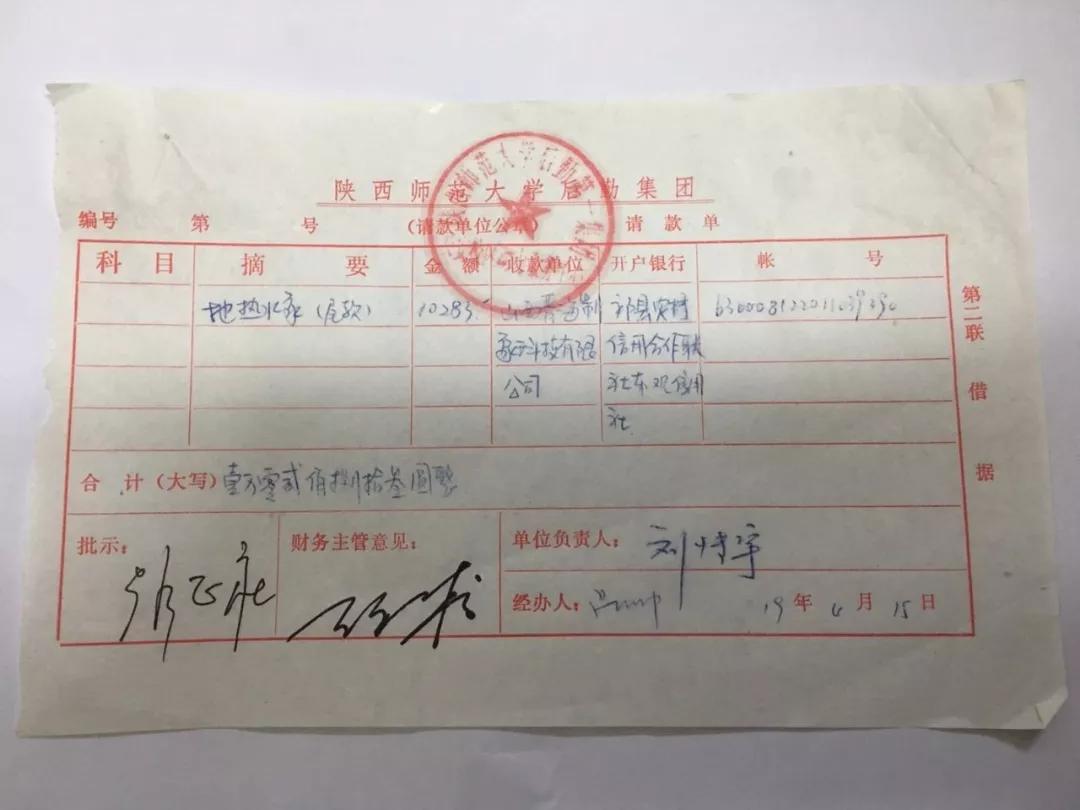 陕西师范大学后勤集团
编号 第 号 (请款单位公章) 请款单
科目 摘要 金额 收款单位 开户银行 帐号
地热水泵(尾款) 10283 制 祁县农村
科技有限 信用合作联
公司 社东观信用
社
第二联 借据
合计(大写) 壹万零贰佰捌拾叁圆整
批示: 财务主管意见: 单位负责人:
经办人: 19年4月15日